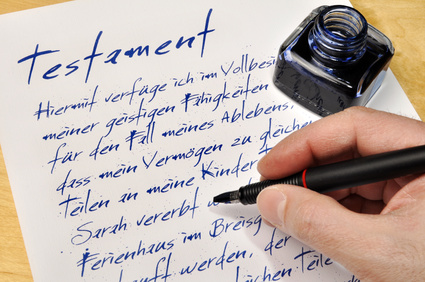 Testament
Hiermit verfüge ich im Vollbesi
meiner geistigen Fähigkeiten
für den Fall meines Ablebens,
dass mein Vermögen zu gleichen
Teilen an meine Kinder
Sarah vererbt
Ferienhaus im Breisg
werden, der
lichen Teile